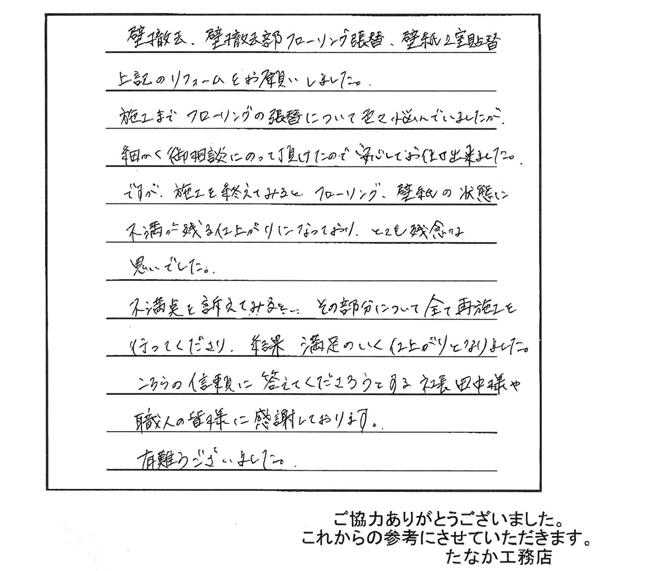 壁撤去、壁撤去部フローリング張替、壁紙2室貼替
上記のリフォームをお願いしました。
施工まで フローリングの張替について色々悩んでいましたが、
細かく御相談にのって頂けたので安心してお任せ出来ました。
ですが、施工を終えてみると フローリング、壁紙の状態に
不満が残る仕上がりになっており、とても残念な
思いでした。
不満点を訴えてみると… その部分について全て再施工を
行ってくださり、結果 満足のいく仕上がりとなりました。
こちらの信頼に答えてくださろうとする社長田中様や
職人の皆様に感謝しております。
有難うございました。
ご協力ありがとうございました。
これからの参考にさせていただきます。
たなか工務店